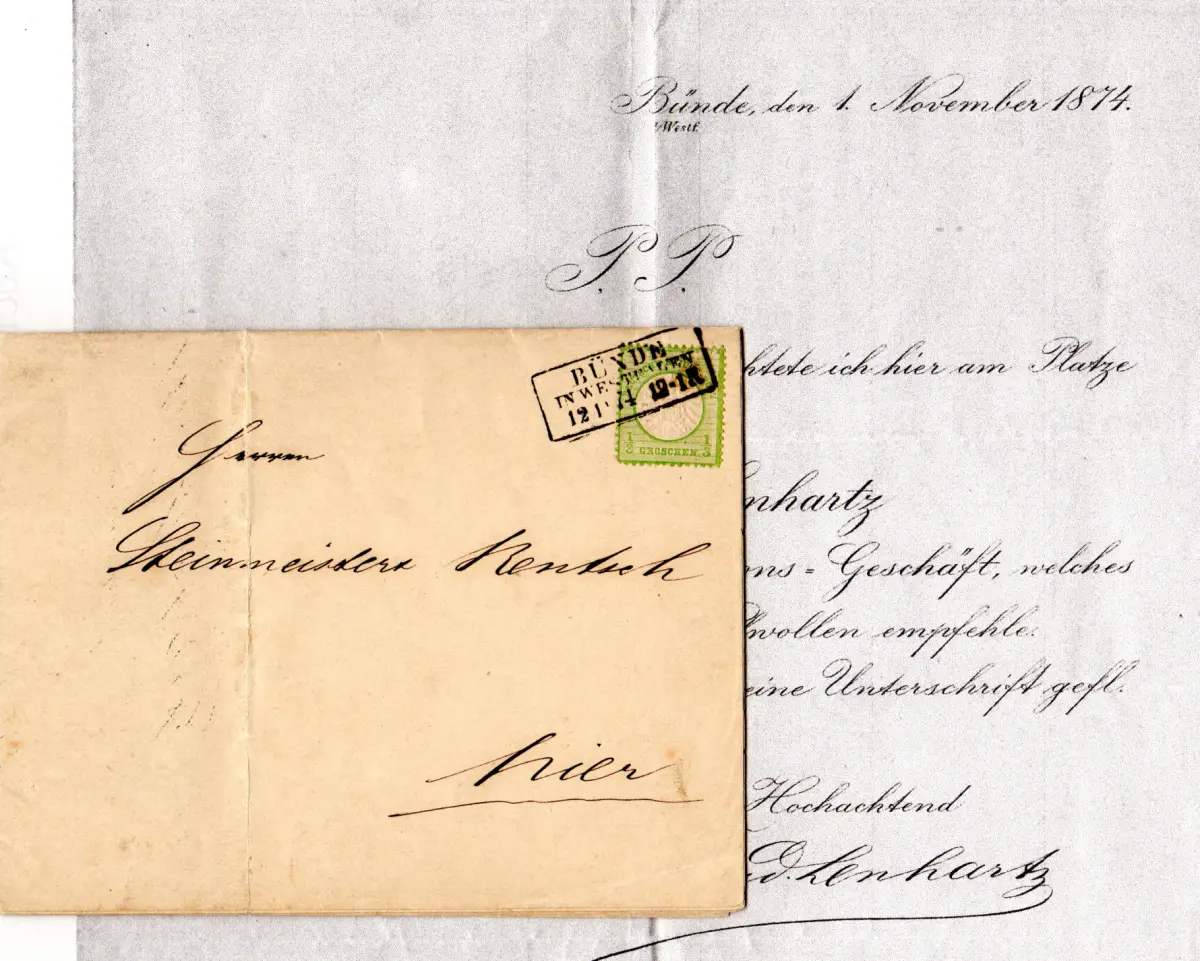 Bünde, den 1. November 1874.
Westf.
P. P.
htete ich hier am Platze
nhartz
ons = Geschäft, welches
hlwollen empfehle.
eine Unterschrift gefl.
Hochachtend
Ed. Lenhartz
BÜNDE
IN WESTFALEN
12 11 74 12-1N
1/3 GROSCHEN 1/3
Herren
Steinmeister & Rentsch
hier